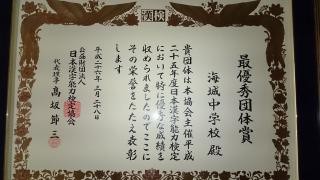 漢検
最優秀団体賞
海城中学校 殿
貴団体は本協会主催平成
二十五年度日本漢字能力検定
において特に優秀な成績を
収められましたのでここに
その栄誉をたたえ表彰
します
平成二十六年三月二十八日
公益財団法人
日本漢字能力検定協会
代表理事 髙坂 節三